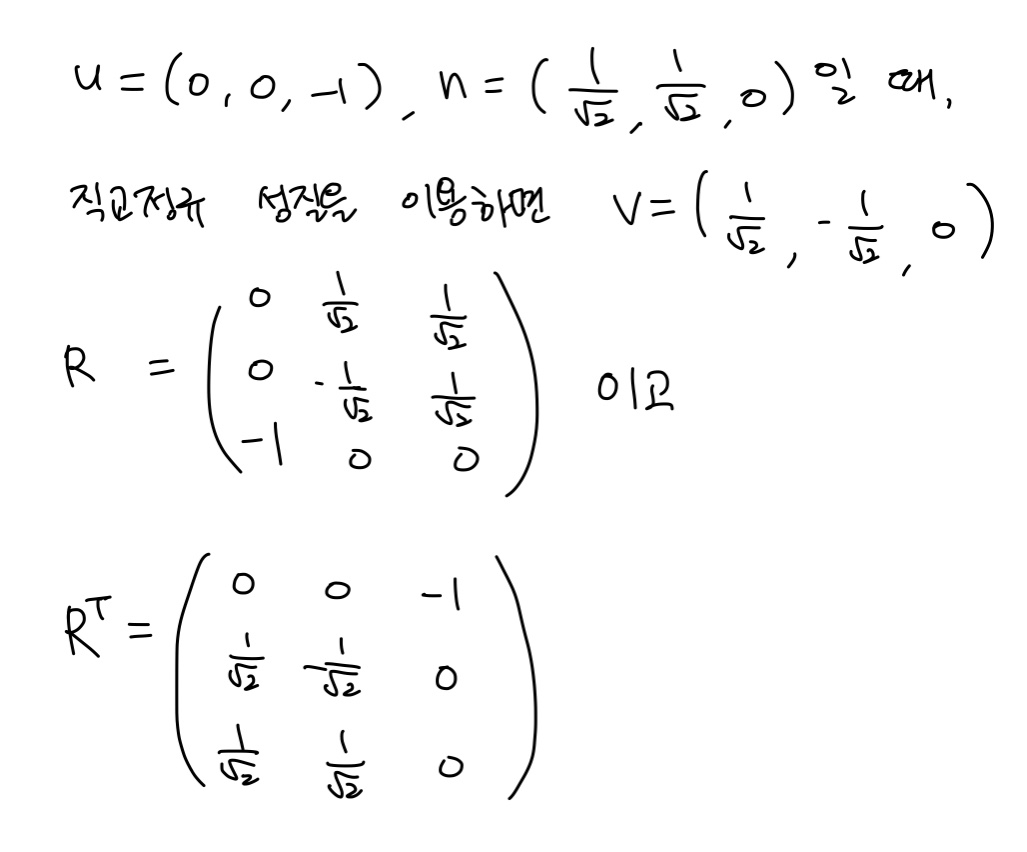 u = (0, 0, -1), n = (1/√2, 1/√2, 0) 일 때,
직교정규 성질을 이용하면 v = (1/√2, -1/√2, 0)
R = ( 0 1/√2 1/√2
0 -1/√2 1/√2
-1 0 0 ) 이고
Rᵀ = ( 0 0 -1
1/√2 -1/√2 0
1/√2 1/√2 0 )